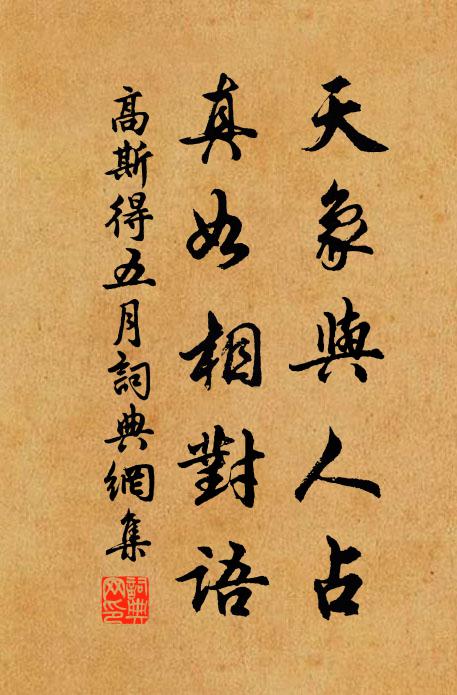 天象與人占
真如相對語
高斯得五月詞典網集
詞典網印